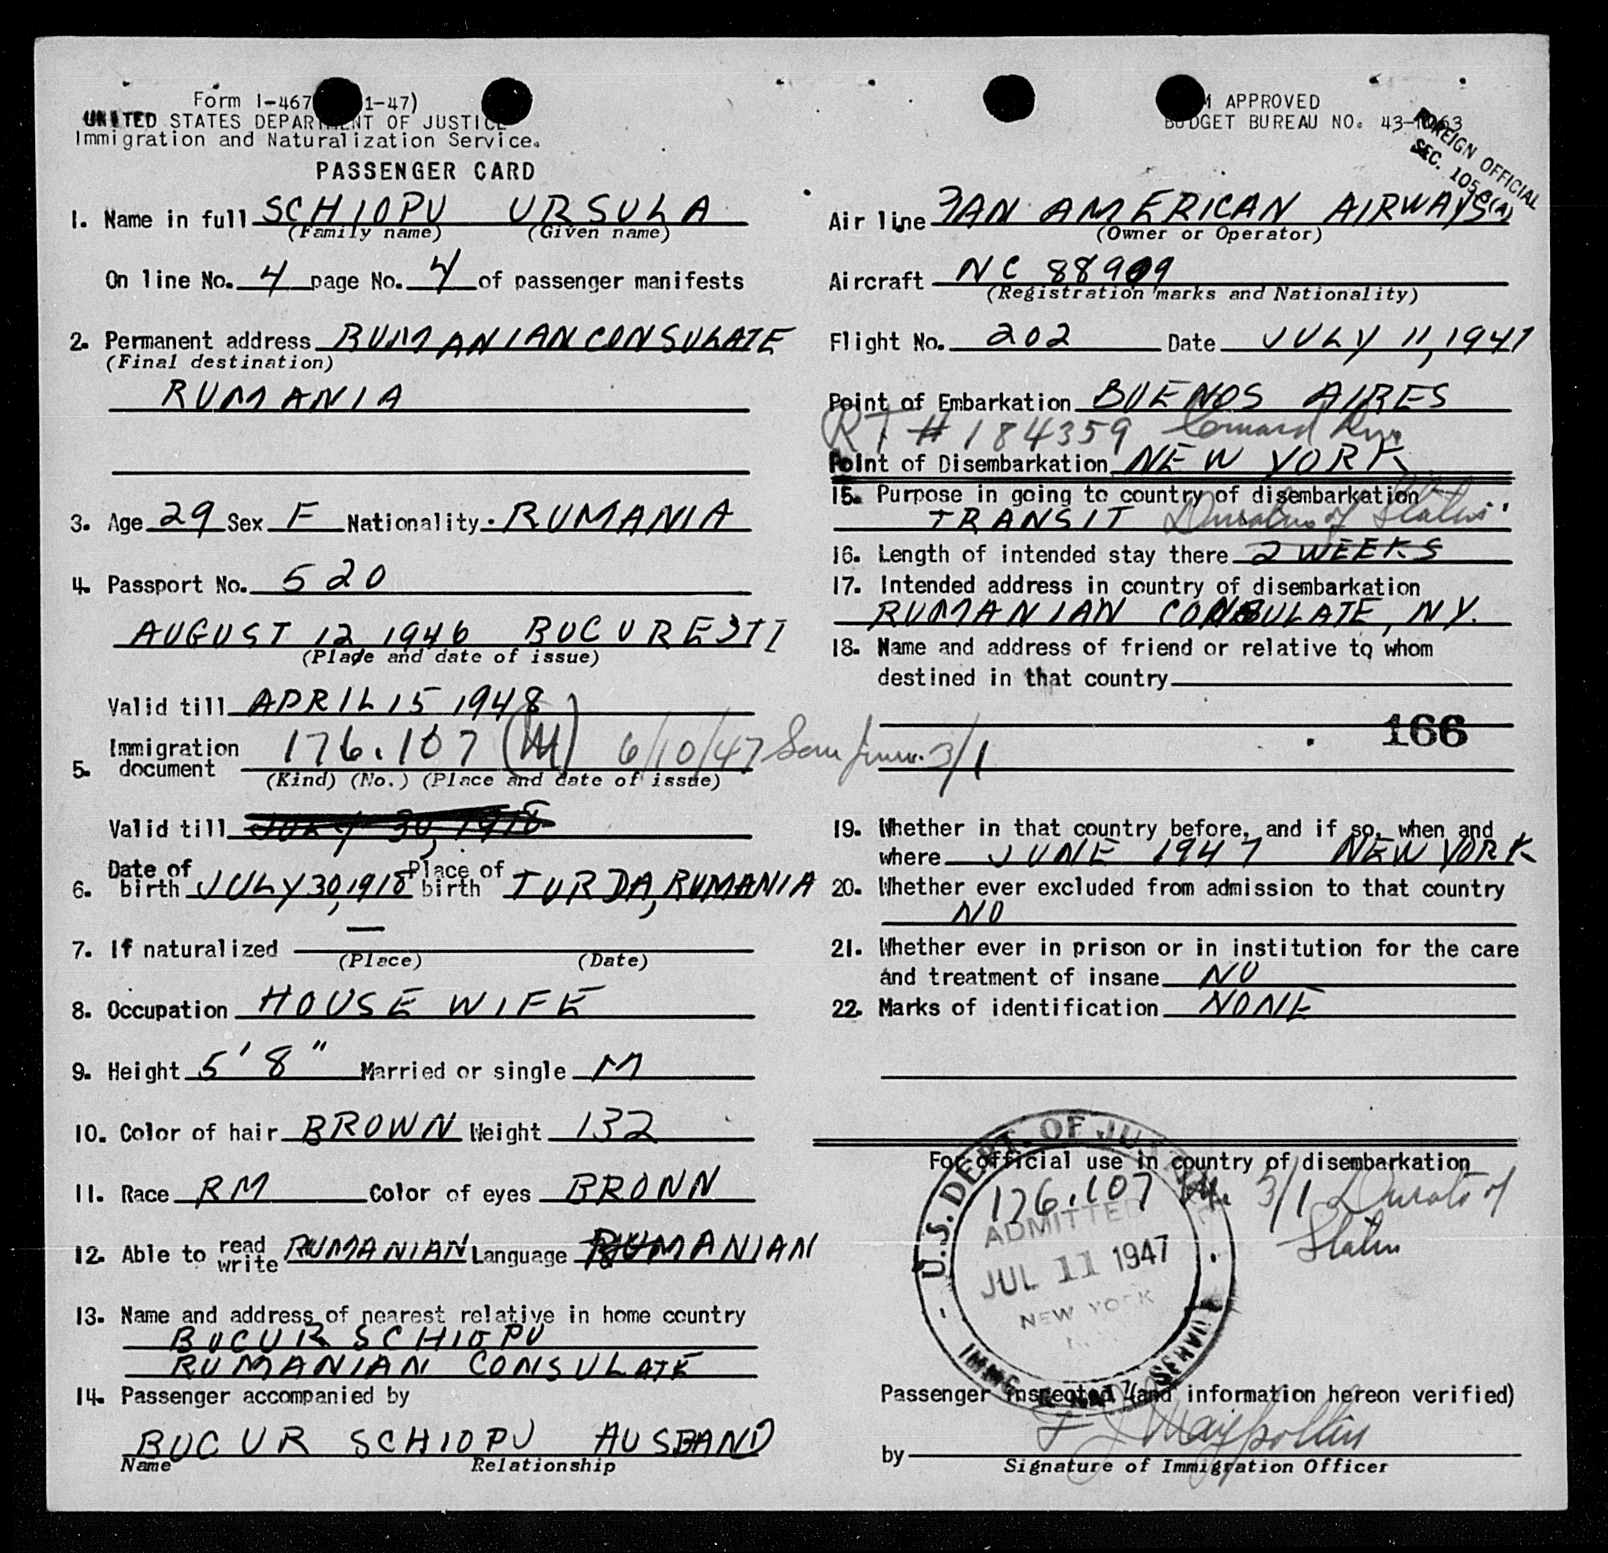 Form I-467 1-47)
UNITED STATES DEPARTMENT OF JUSTICE
Immigration and Naturalization Service.
PASSENGER CARD
1. Name in full SCHIOPU URSULA
(Family name) (Given name)
On line No. 4 page No. 4 of passenger manifests
2. Permanent address RUMANIAN CONSULATE
(Final destination)
RUMANIA
3. Age 29 Sex F Nationality. RUMANIA
4. Passport No. 520
AUGUST 12 1946 BUCURESTI
(Place and date of issue)
Valid till APRIL 15 1948
5. Immigration document 176.107 (M) 6/10/47 San Juan. 3/1
(Kind) (No.) (Place and date of issue)
Valid till JULY 30, 1918
6. Date of birth JULY 30, 1918 Place of birth TURDA, RUMANIA
7. If naturalized —
(Place) (Date)
8. Occupation HOUSE WIFE
9. Height 5' 8" Married or single M
10. Color of hair BROWN Weight 132
11. Race RM Color of eyes BRONN
12. Able to read write RUMANIAN Language RUMANIAN
13. Name and address of nearest relative in home country
BUCUR SCHIOPU
RUMANIAN CONSULATE
14. Passenger accompanied by
BUCUR SCHIOPU HUSBAND
Name Relationship
M APPROVED
BUDGET BUREAU NO. 43-R063
FOREIGN OFFICIAL
SEC. 105
Air line PAN AMERICAN AIRWAYS
(Owner or Operator)
Aircraft NC 88909
(Registration marks and Nationality)
Flight No. 202 Date JULY 11, 1947
Point of Embarkation BUENOS AIRES
RT # 184359
Point of Disembarkation NEW YORK
15. Purpose in going to country of disembarkation
TRANSIT Duration of Status.
16. Length of intended stay there 2 WEEKS
17. Intended address in country of disembarkation
RUMANIAN CONSULATE, NY.
18. Name and address of friend or relative to whom
destined in that country
166
19. Whether in that country before, and if so, when and
where JUNE 1947 NEW YORK
20. Whether ever excluded from admission to that country
NO
21. Whether ever in prison or in institution for the care
and treatment of insane NO
22. Marks of identification NONE
For official use in country of disembarkation
176.107 3/1 Durato of
Status
U.S. DEPT. OF JUSTICE
ADMITTED
JUL 11 1947
NEW YORK
N.Y.
IMMIG. & NAT'Z SERVICE
Passenger inspected (and information hereon verified)
by
Signature of Immigration Officer